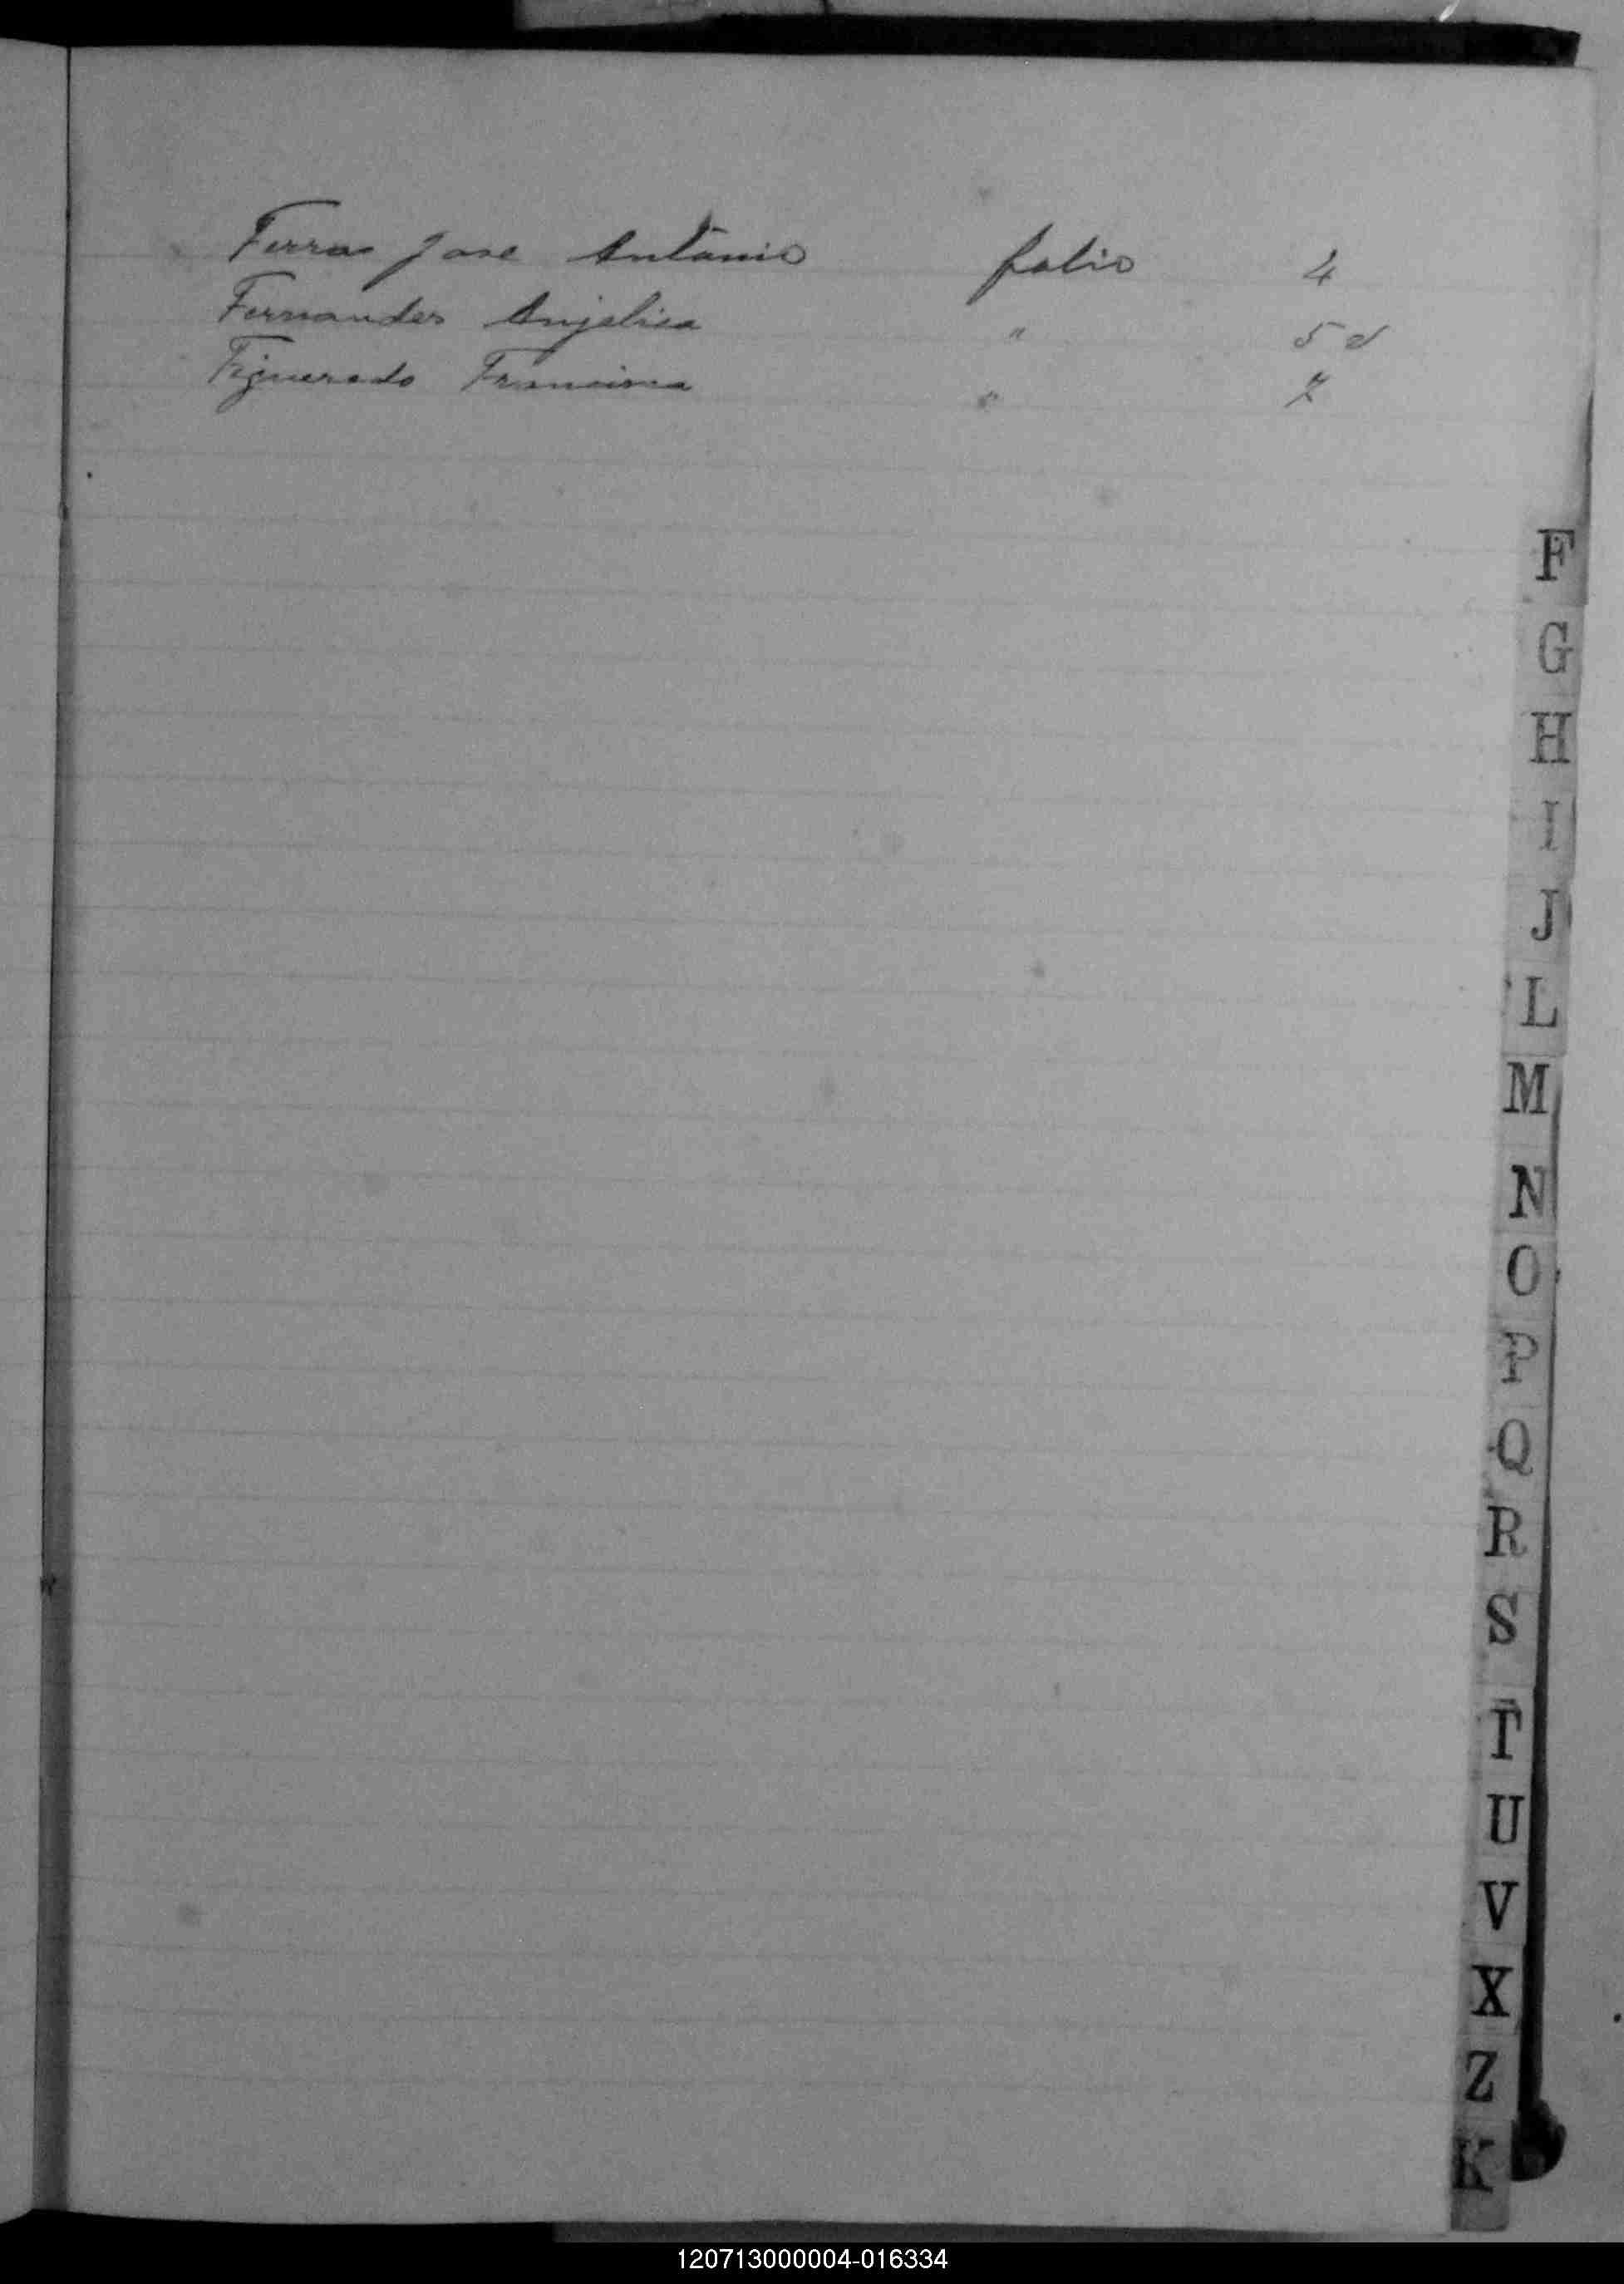 Ferras Jose Antonio folio 4
Fernandes Anjelica " 5 v
Figueredo Francisca " 7
F
G
H
I
J
L
M
N
O
P
Q
R
S
T
U
V
X
Z
K
120713000004-016334